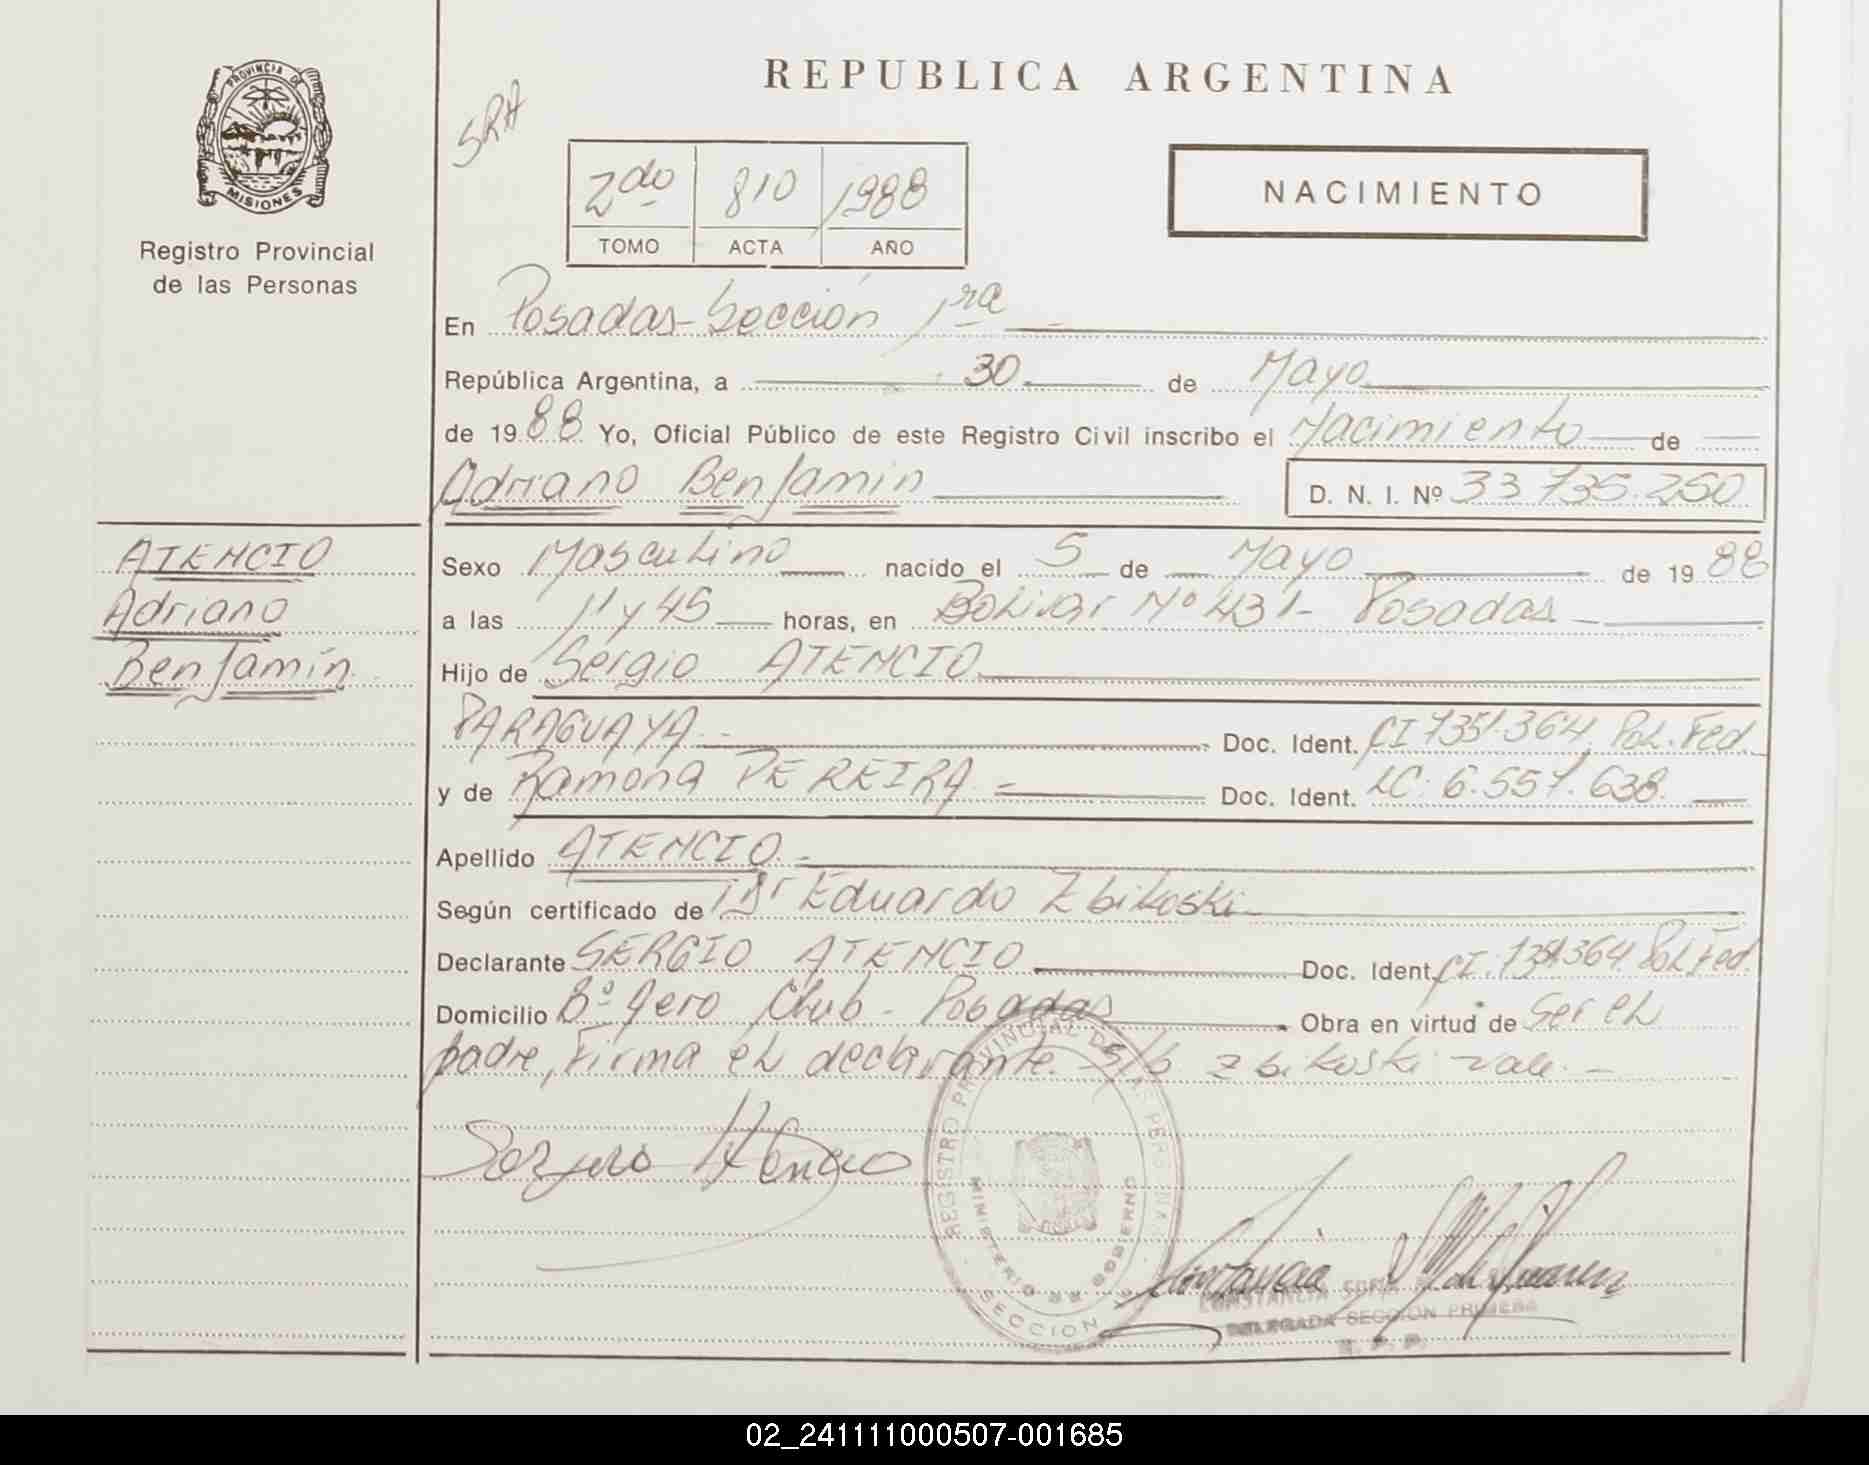 PROVINCIA DE
MISIONES
Registro Provincial
de las Personas
SRA
REPUBLICA ARGENTINA
2do 810 1988
TOMO ACTA AÑO
NACIMIENTO
En Posadas-Sección 1ra
República Argentina, a 30 de Mayo
de 1988 Yo, Oficial Público de este Registro Civil inscribo el Nacimiento de
Adriano Benjamin D. N. I. Nº 33 735.250
ATENCIO
Adriano
Benjamín
Sexo Masculino nacido el 5 de Mayo de 1988
a las 11 y 45 horas, en Bolivar Nº 431- Posadas
Hijo de Sergio ATENCIO
PARAGUAYA Doc. Ident. CI 7351.364 Pol. Fed.
y de Ramona PEREIRA Doc. Ident. LC. 6.557.638.
Apellido ATENCIO
Según certificado de Dr Eduardo Zbikoski
Declarante SERGIO ATENCIO Doc. Ident. CI. 7351364 Pol Fed.
Domicilio Bº Aero Club - Posadas Obra en virtud de ser el
padre, Firma el declarante. S/b Zbikoski vale.
Sergio Atencio
REGISTRO PROVINCIAL DE LAS PERSONAS
MINISTERIO DE GOBIERNO
SECCION
CONSTANCIA SOFIA
DELEGADA SECCION PRIMERA
R. P. P.
02_241111000507-001685